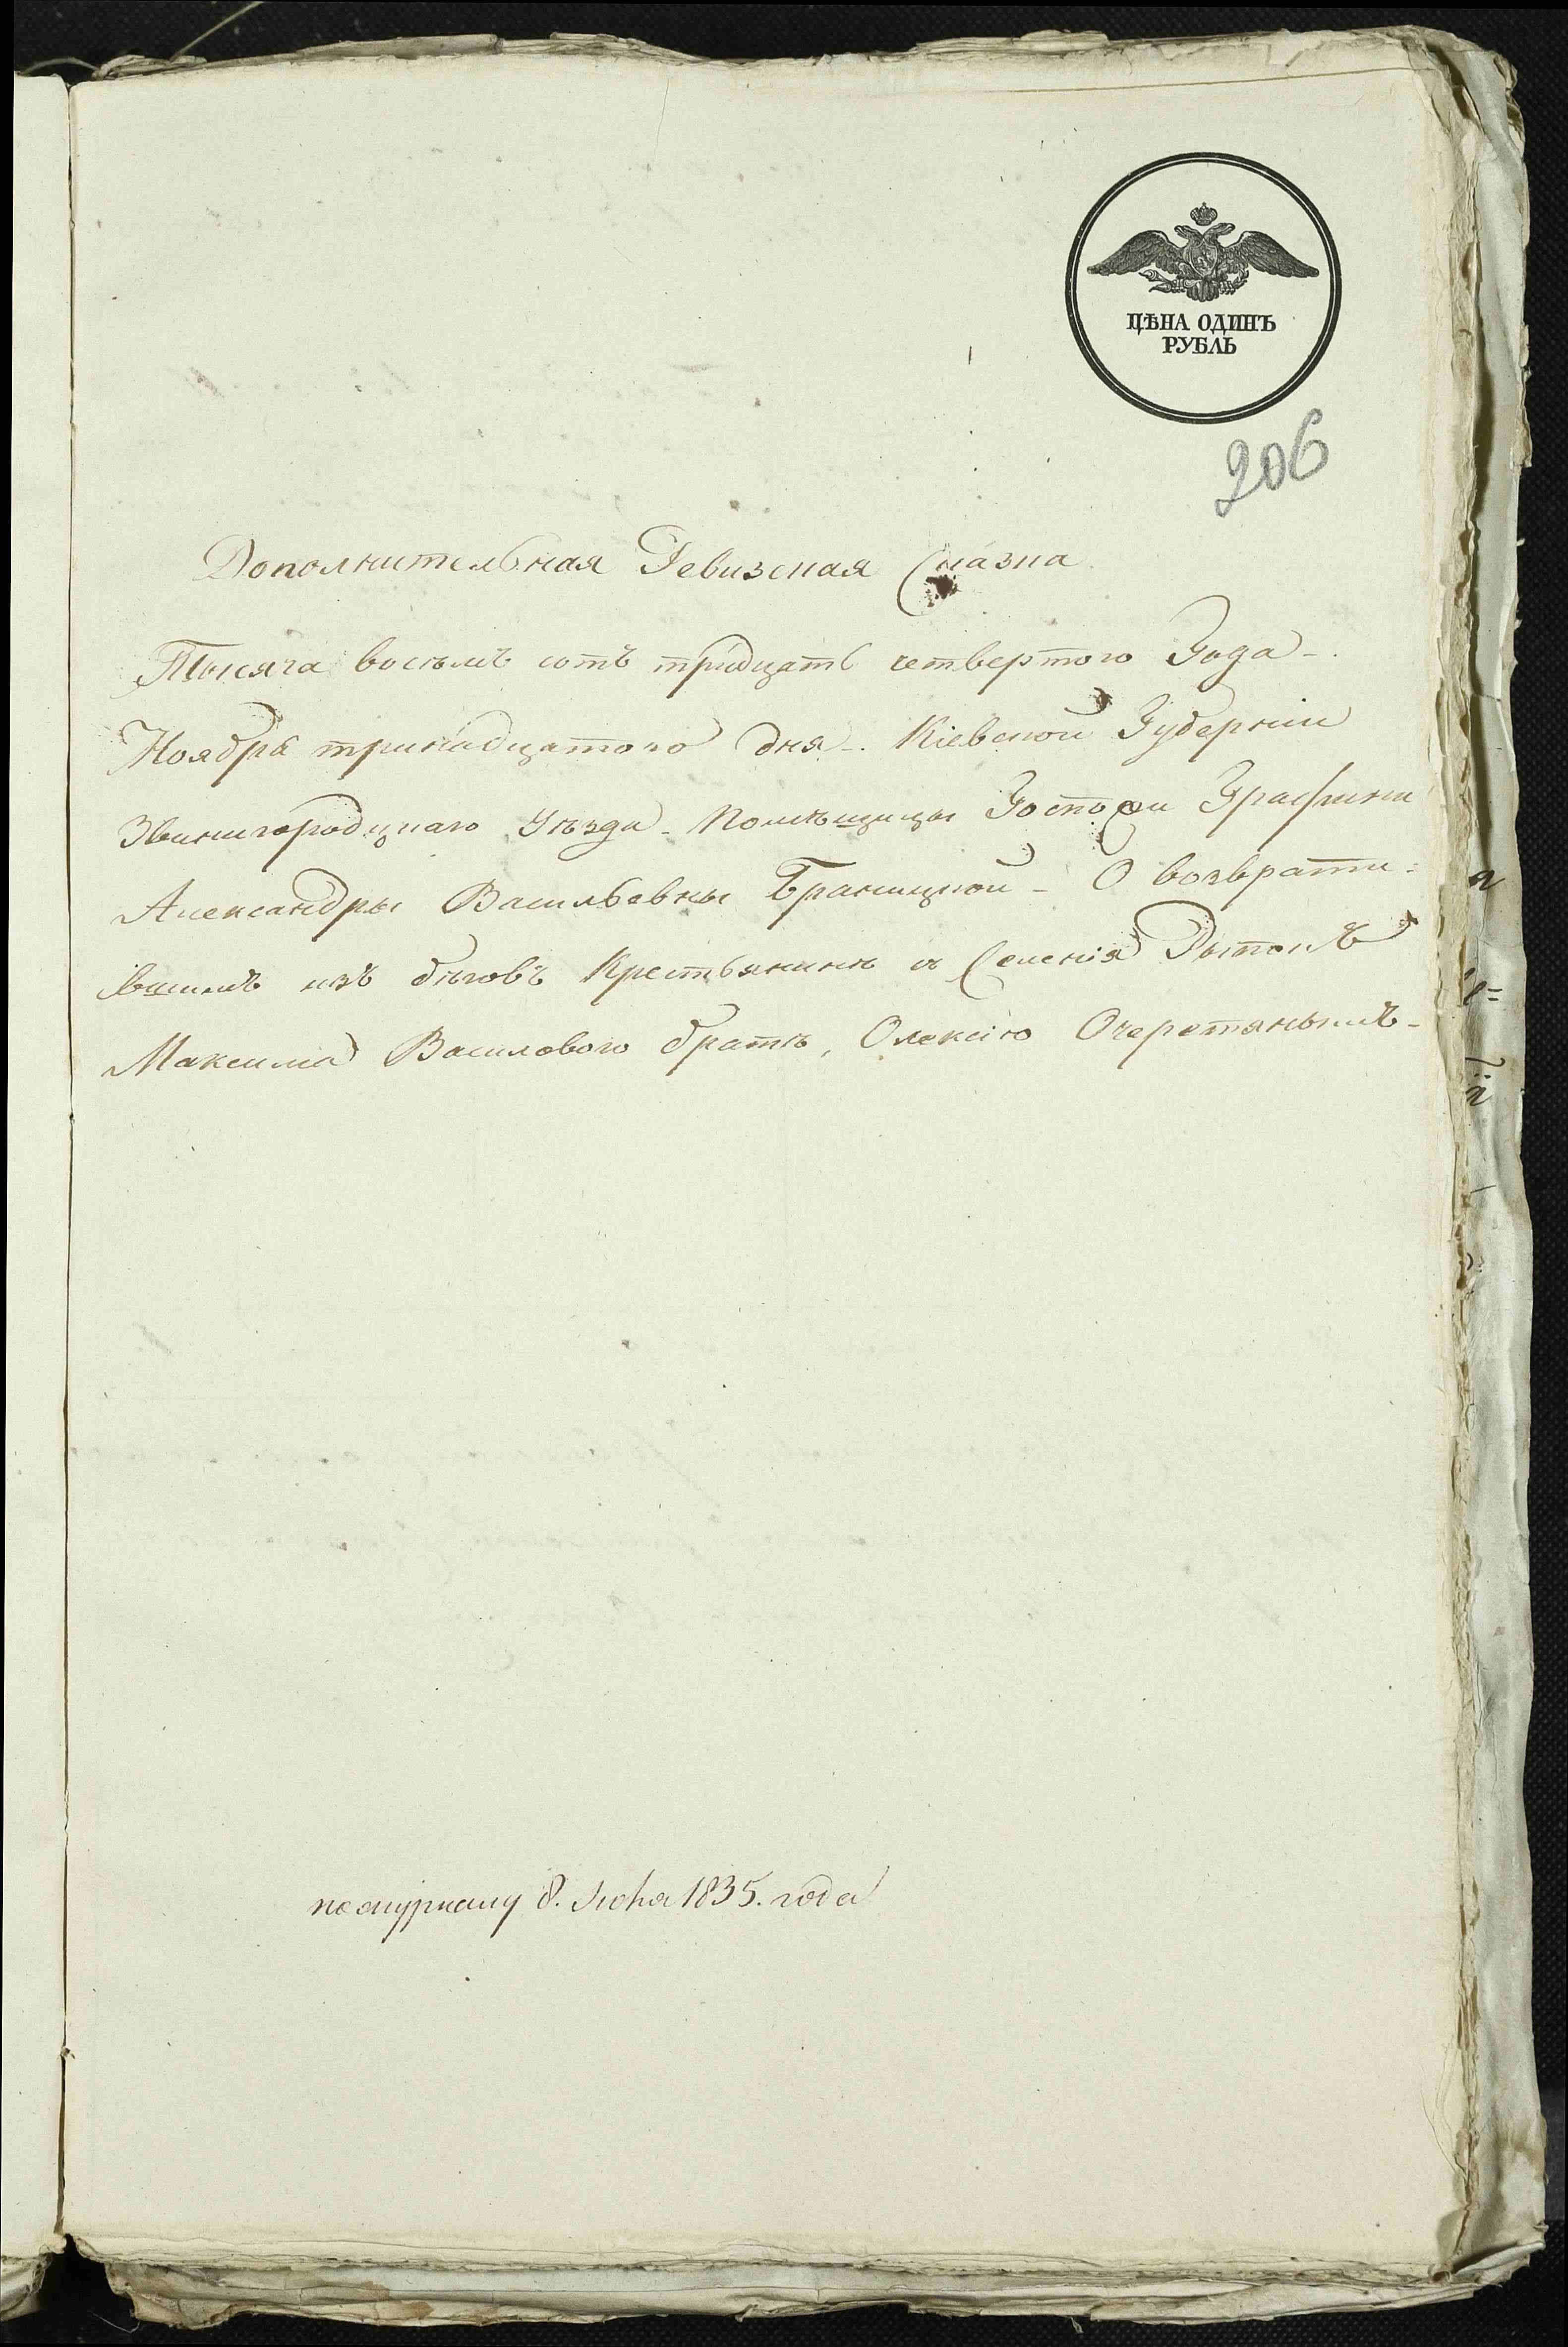 ЦѢНА ОДИНЪ
РУБЛЬ
206
Дополнительная Ревизская Сказка
Тысяча восемъ сотъ тридцать четвертого Года
Ноября тринадцатого дня. Кіевской Губерніи
Звинигородцкаго Уѣзда Помѣщицы Госпожи Графини
Александры Васильевны Браницкой - О возврати-
вшимъ изъ бѣговъ Крестьянинѣ Селенія
Максима Васильового братѣ, Олексію Очеретянымъ
по журналу 8. Іюня 1835. года